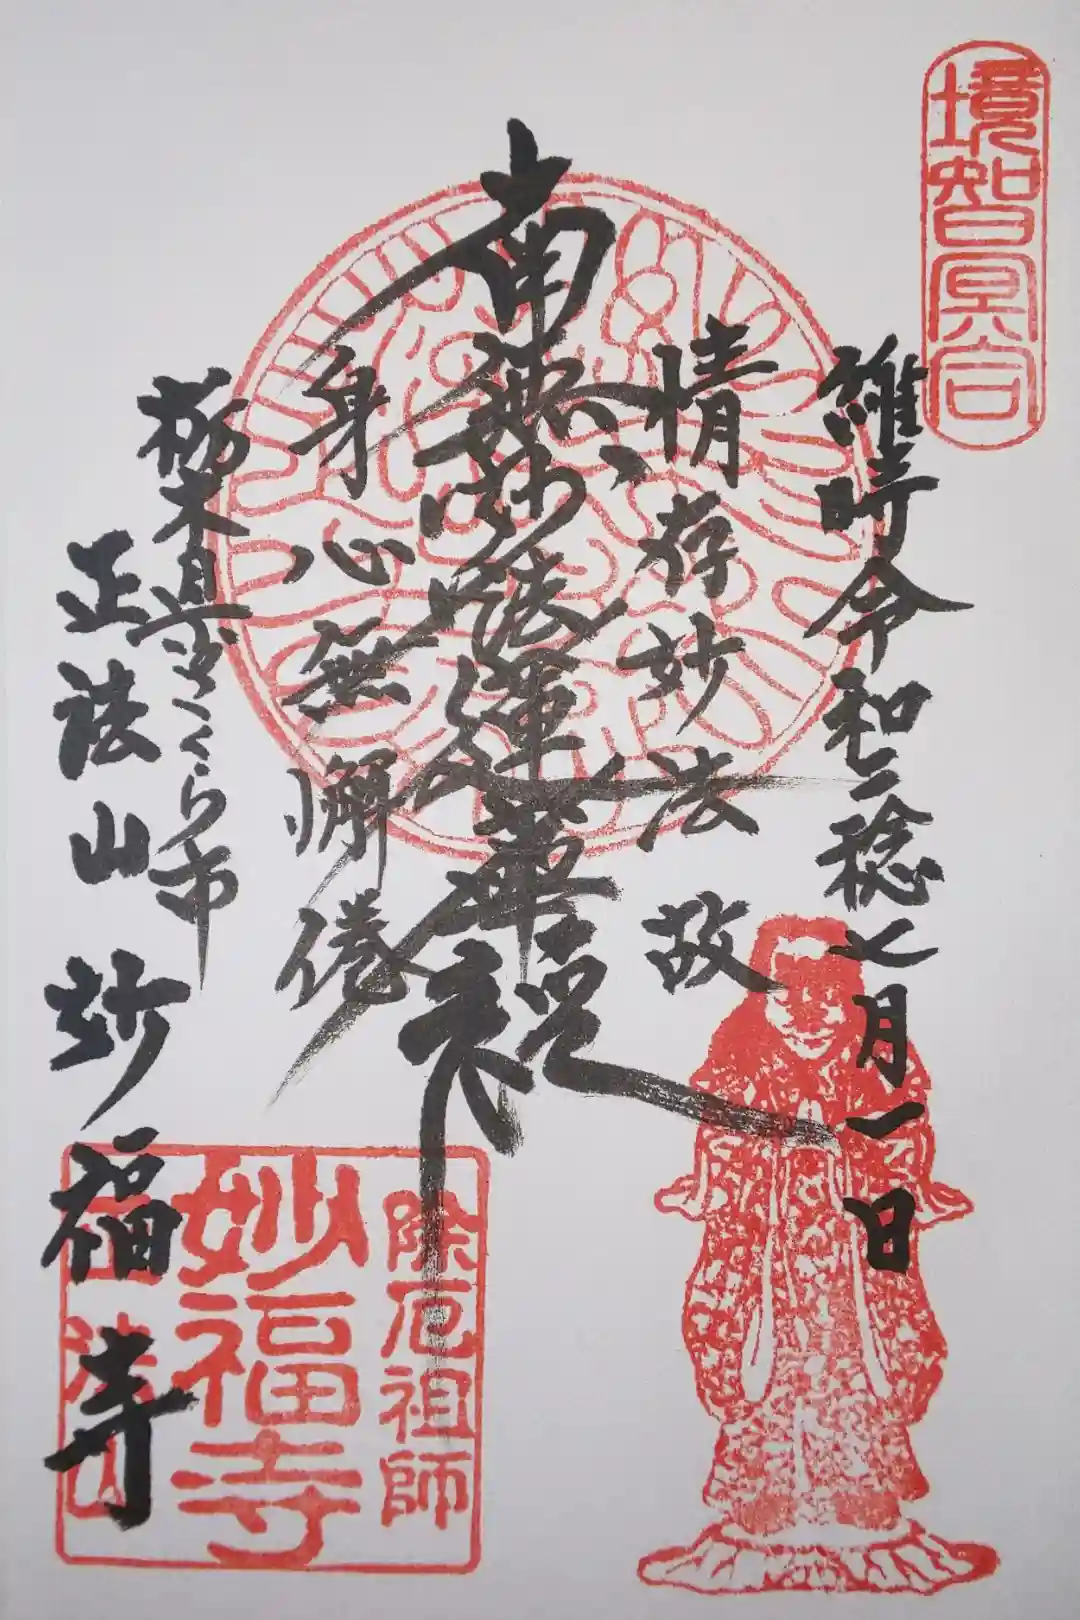 境智冥合
維時令和二稔七月一日
情存妙法故
南無妙法蓮華経
身心無懈倦
栃木県さくら市
正法山妙福寺
除厄祖師
妙福寺
正法山